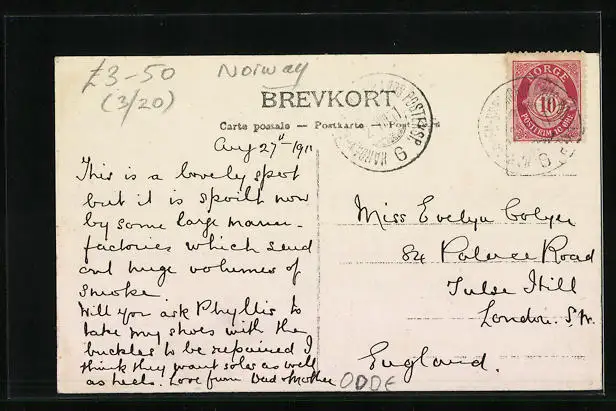 £3-50
(3/20)
Norway
BREVKORT
Carte postale – Postkarte –
NORGE
10
POSTFRIM 10 ØRE
POSTEKSP
9
Aug 27th 1911
This is a lovely spot
but it is spoilt now
by some large manu-
factories which send
out huge volumes of
smoke.
Will you ask Phyllis to
take my shoes with the
buckles to be repaired I
think they want soles as well
as heels. Love from Dad & Mother
Miss Evelyn Colyer
84 Palace Road
Tulse Hill
London. S.W.
England.
ODDE